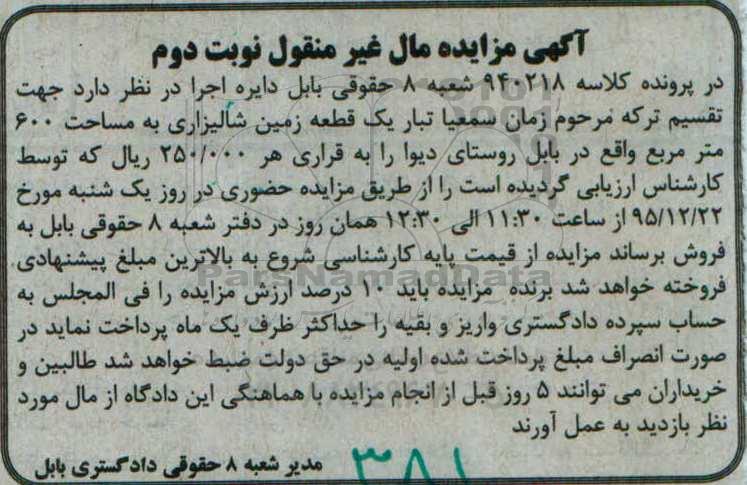 آگهی مزایده مال غیر منقول نوبت دوم
در پرونده کلاسه ۹۴۰۲۱۸ شعبه ۸ حقوقی بابل دایره اجرا در نظر دارد جهت
تقسیم ترکه مرحوم زمان سمعیا تبار یک قطعه زمین شالیزاری به مساحت ۶۰۰
متر مربع واقع در بابل روستای دیوا را به قراری هر ۲۵۰/۰۰۰ ریال که توسط
کارشناس ارزیابی گردیده است را از طریق مزایده حضوری در روز یک شنبه مورخ
۹۵/۱۲/۲۲ از ساعت ۱۱:۳۰ الی ۱۲:۳۰ همان روز در دفتر شعبه ۸ حقوقی بابل به
فروش برساند مزایده از قیمت پایه کارشناسی شروع به بالاترین مبلغ پیشنهادی
ParsNamadData
فروخته خواهد شد برنده مزایده باید ۱۰ درصد ارزش مزایده را فی المجلس به
حساب سپرده دادگستری واریز و بقیه را حداکثر ظرف یک ماه پرداخت نماید در
صورت انصراف مبلغ پرداخت شده اولیه در حق دولت ضبط خواهد شد طالبین و
خریداران می توانند ۵ روز قبل از انجام مزایده با هماهنگی این دادگاه از مال مورد
نظر بازدید به عمل آورند
مدیر شعبه ۸ حقوقی دادگستری بابل
۳۸۱